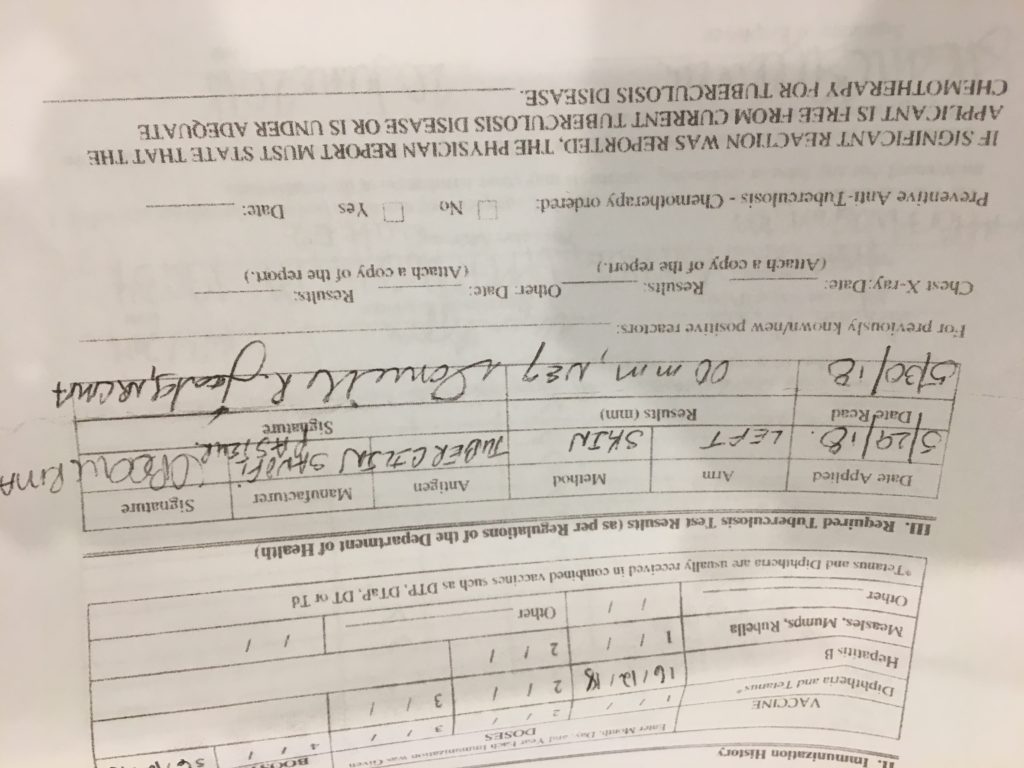 II. Immunization History
Enter Month, Day, and Year Each Immunization was Given
VACCINE DOSES
Diphtheria and Tetanus* 1 / / 2 / / 3 / / 4 / /
Hepatitis B 1 6 / 12 / 18 2 / / 3 / /
Measles, Mumps, Rubella 1 / / 2 / /
Other / / Other / /
*Tetanus and Diphtheria are usually received in combined vaccines such as DTP, DTaP, DT or Td
III. Required Tuberculosis Test Results (as per Regulations of the Department of Health)
Date Applied Arm Method Antigen Manufacturer Signature
5/29/18. LEFT SKIN TUBERCULIN SANOFI PASTEUR.
Date Read Results (mm) Signature
5/30/18 00 mm, neg
For previously known/new positive reactors:
Chest X-ray: Date: Results: Other: Date: Results:
(Attach a copy of the report.) (Attach a copy of the report.)
Preventive Anti-Tuberculosis - Chemotherapy ordered: No Yes Date:
IF SIGNIFICANT REACTION WAS REPORTED, THE PHYSICIAN REPORT MUST STATE THAT THE
APPLICANT IS FREE FROM CURRENT TUBERCULOSIS DISEASE OR IS UNDER ADEQUATE
CHEMOTHERAPY FOR TUBERCULOSIS DISEASE.